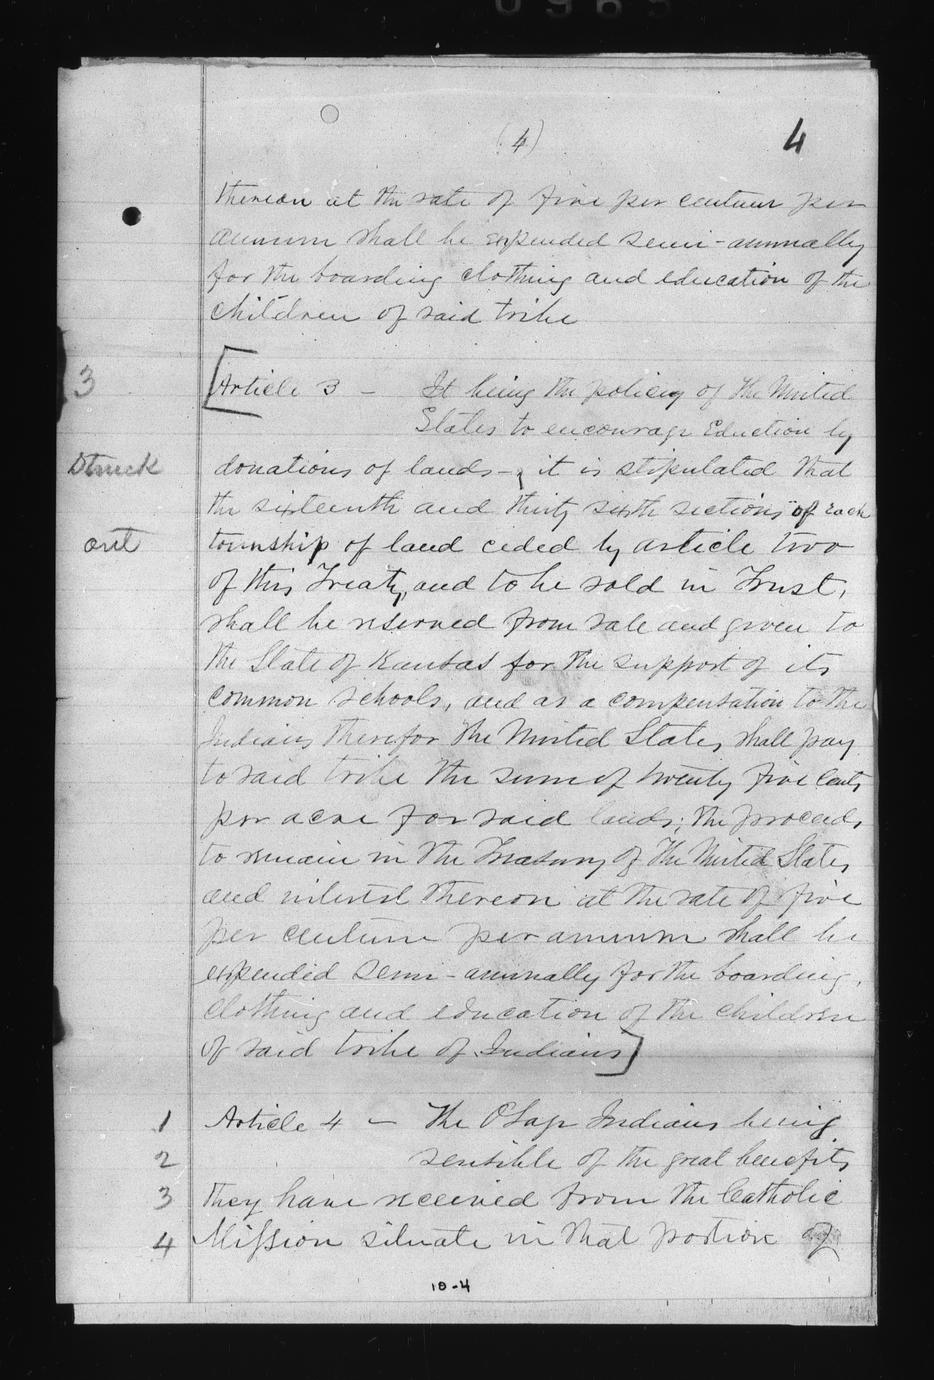 0965
(4) 4
thereon at the rate of five per centum per
annum shall be expended semi-annually
for the boarding clothing and education of the
children of said tribe
3 [Article 3 - It being the policy of the United
States to encourage Eduction by
Struck donations of lands -, it is stipulated that
the sixteenth and thirty sixth sections of each
out township of land ceded by article two
of this Treaty, and to be sold in Trust,
shall be reserved from sale and given to
the State of Kansas for the support of its
common schools, and as a compensation to the
Indians therefor the United States shall pay
to said tribe the sum of twenty five cents
per acre for said lands; the proceeds
to remain in the Treasury of the United States
and interest thereon at the rate of five
per centum per annum shall be
expended semi-annually for the boarding,
clothing and education of the children
of said tribe of Indians]
1 Article 4 - The Osage Indians being
2 sensible of the great benefits
3 they have received from the Catholic
4 Mission situate in that portion of
10-4